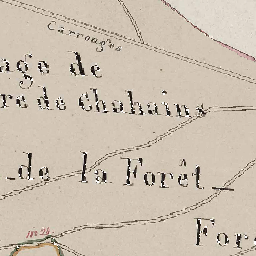 Carrouges
age de
re de Chahains
de la Forêt
For